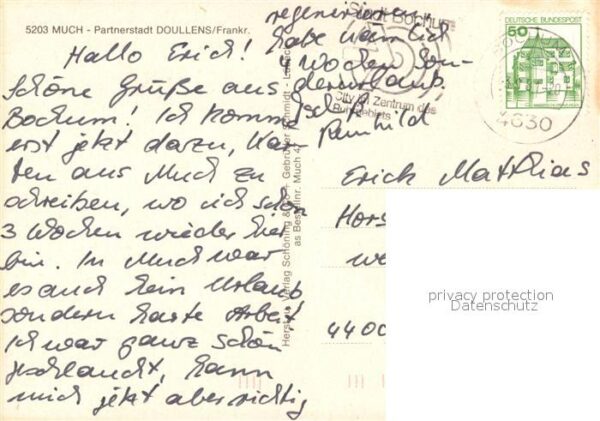 5203 MUCH - Partnerstadt DOULLENS/Frankr.
Hallo Erich!
Schöne Grüße aus
Bochum! Ich komme
erst jetzt dazu, Kar-
ten aus Much zu
schreiben, wo ich schon
3 Wochen wieder hier
bin. In Much war
es auch kein Urlaub
sondern harte Arbeit
Ich war ganz schön
geschlaucht, kann
mich jetzt aber richtig
regenerieren
habe nämlich
4 Wochen Son-
derurlaub.
Tschüß
Reinhild
Stadt Bochum
City im Zentrum des
Ruhrgebiets
DEUTSCHE BUNDESPOST
50
4630
Herst. u. Verlag Schöning & Gebrüder Schmidt
Bestellnr. Much 4
Erich Matthias
Hors
44
privacy protection
Datenschutz